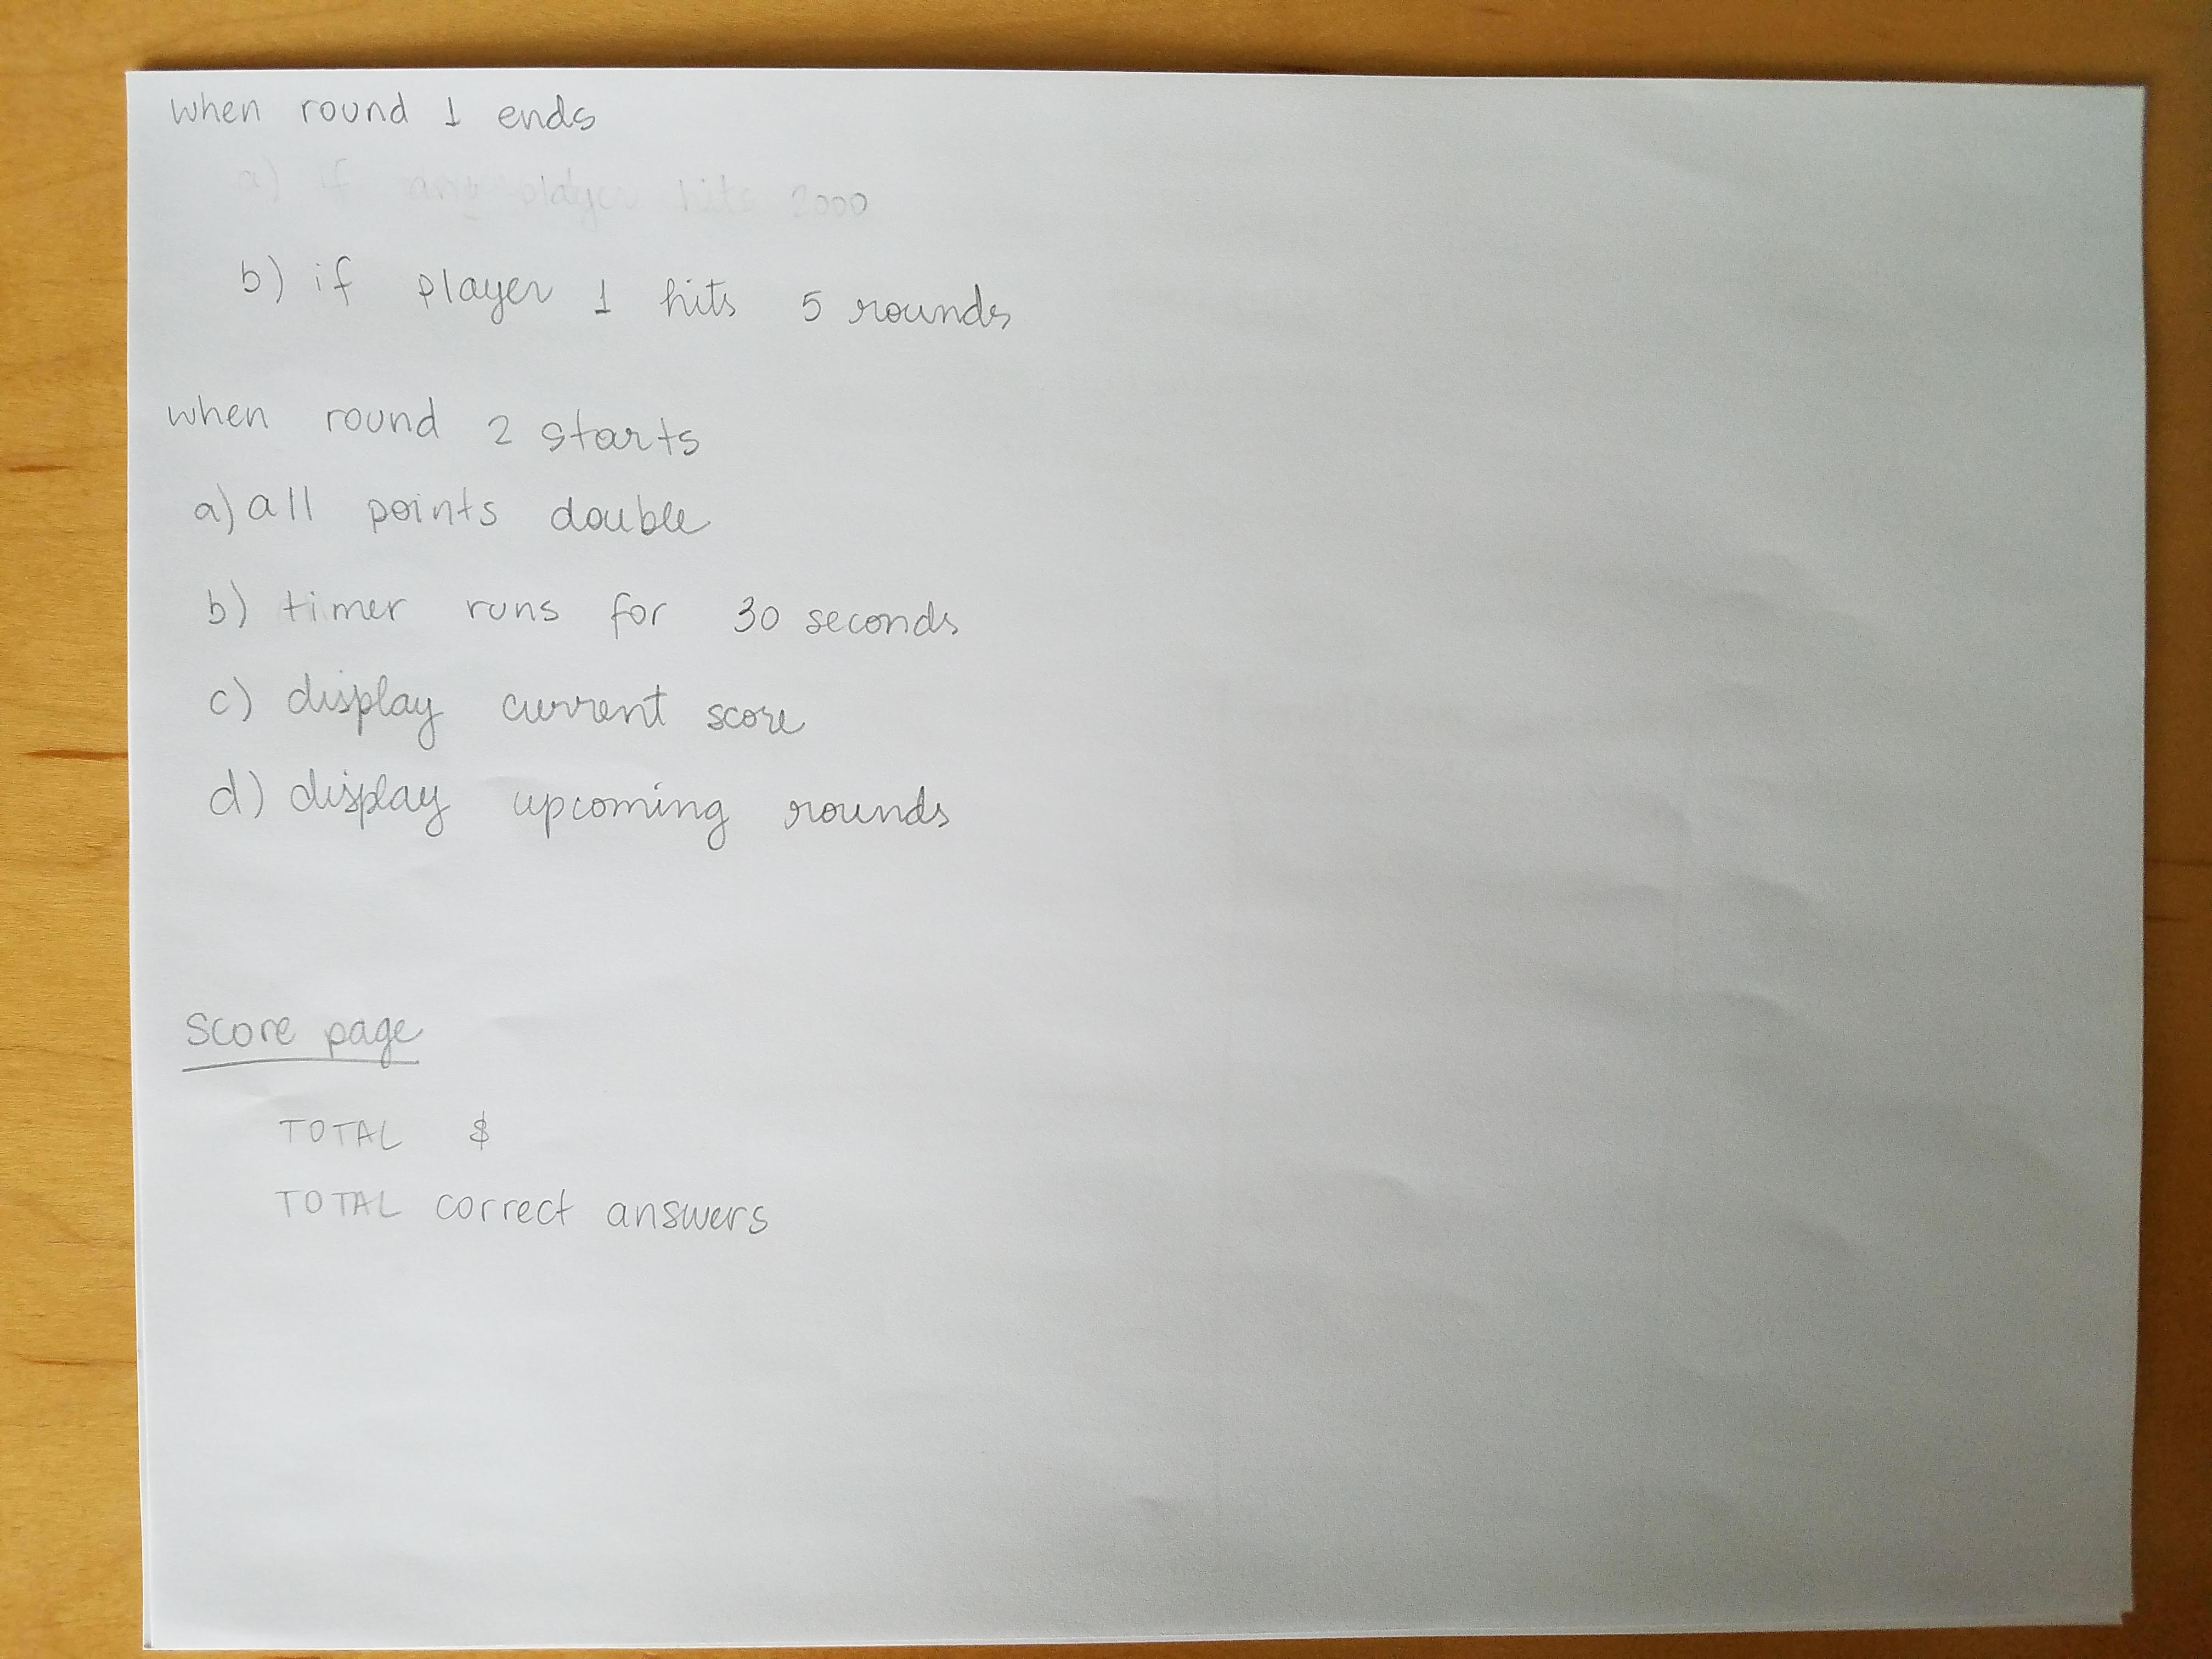 when round 1 ends
a) if any player hits 2000
b) if player 1 hits 5 rounds
when round 2 starts
a) all points double
b) timer runs for 30 seconds
c) display current score
d) display upcoming rounds
Score page
TOTAL $
TOTAL correct answers